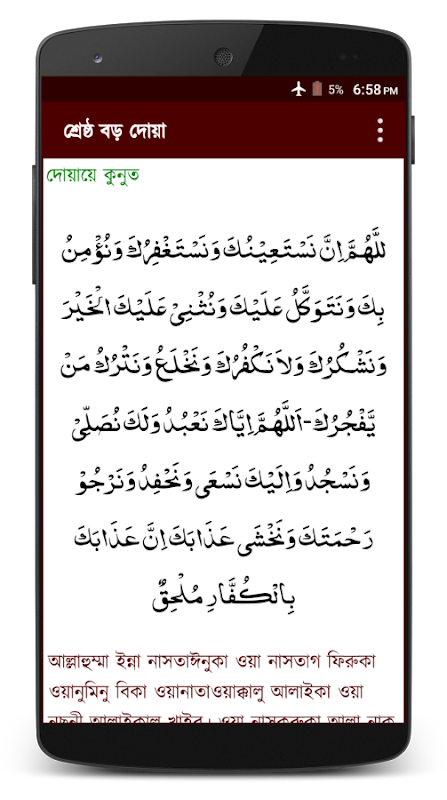 5% 6:58 PM
শ্রেষ্ঠ বড় দোয়া
দোয়ায়ে কুনুত
للَّهُمَّ اِنَّ نَسْتَعِيْنُكَ وَنَسْتَغْفِرُكَ وَنُؤْمِنُ
بِكَ وَنَتَوَكَّلُ عَلَيْكَ وَنُثْنِىْ عَلَيْكَ الْخَيْرَ
وَنَشْكُرُكَ وَلاَ نَكْفُرُكَ وَنَخْلَعُ وَنَتْرُكُ مَنْ
يَّفْجُرُكَ-اَللَّهُمَّ اِيَّاكَ نَعْبُدُ وَلَكَ نُصَلِّىْ
وَنَسْجُدُ وَاِلَيْكَ نَسْعَى وَنَحْفِدُ وَنَرْجُوْ
رَحْمَتَكَ وَنَخْشَى عَذَابَكَ اِنَّ عَذَابَكَ
بِالْكُفَّارِ مُلْحِقٌ
আল্লাহুম্মা ইন্না নাসতাঈনুকা ওয়া নাসতাগ ফিরুকা
ওয়ানুমিনু বিকা ওয়ানাতাওয়াক্কালু আলাইকা ওয়া
নুছনী আলাইকাল খাইর। ওয়া নাসকুরুকা আলা নাক